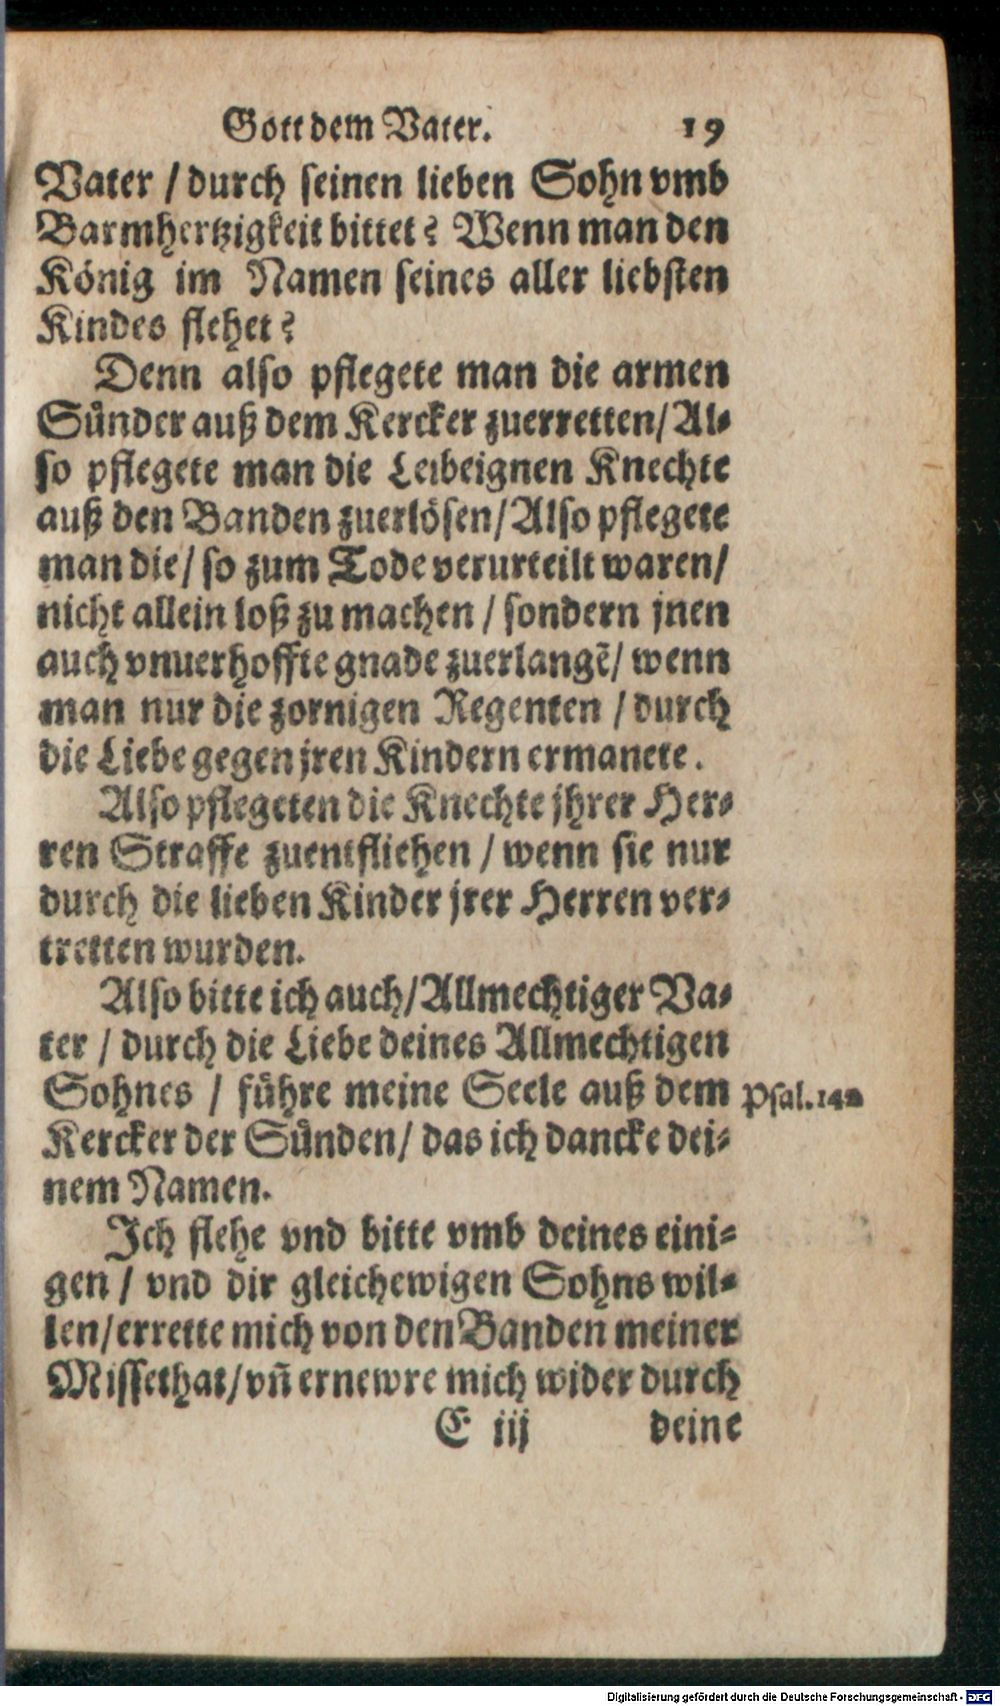 Gott dem Vater. 19
Vater / durch seinen lieben Sohn vmb
Barmhertzigkeit bittet? Wenn man den
König im Namen seines aller liebsten
Kindes flehet?
Denn also pflegete man die armen
Sünder auß dem Kercker zuerretten / Al-
so pflegete man die Leibeignen Knechte
auß den Banden zuerlösen / Also pflegete
man die / so zum Tode verurteilt waren /
nicht allein loß zu machen / sondern jnen
auch vnuerhoffte gnade zuerlangẽ / wenn
man nur die zornigen Regenten / durch
die Liebe gegen jren Kindern ermanete.
Also pflegeten die Knechte jhrer Her-
ren Straffe zuentfliehen / wenn sie nur
durch die lieben Kinder jrer Herren ver-
tretten wurden.
Also bitte ich auch / Allmechtiger Va-
ter / durch die Liebe deines Allmechtigen
Sohnes / führe meine Seele auß dem
Psal. 142
Kercker der Sünden / das ich dancke dei-
nem Namen.
Ich flehe vnd bitte vmb deines eini-
gen / vnd dir gleichewigen Sohns wil-
len / errette mich von den Banden meiner
Missethat / vn̄ ernewre mich wider durch
E iij deine
Digitalisierung gefördert durch die Deutsche Forschungsgemeinschaft - DFG